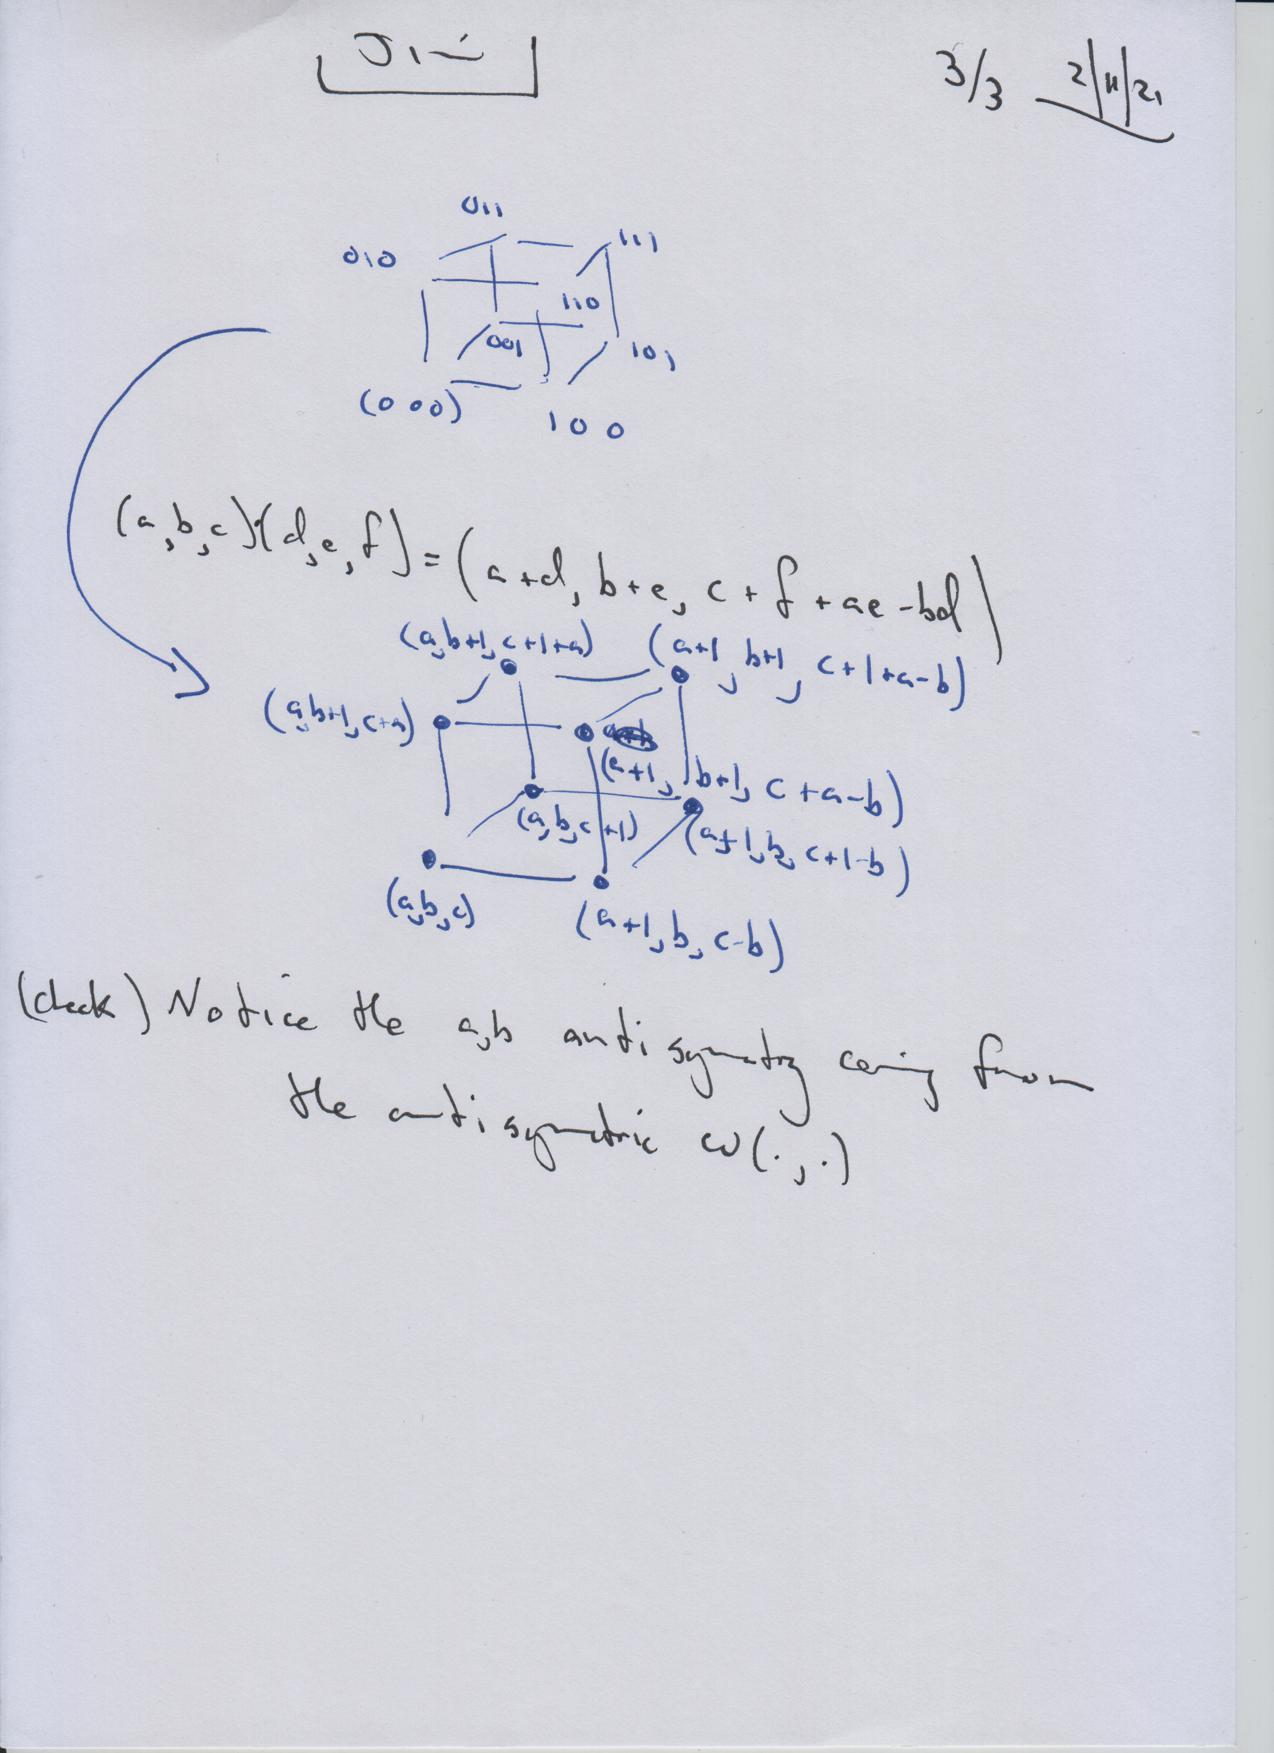 Jim
3/3 2/11/21
011
010 111
110
001 101
(000) 100
(a,b,c)·(d,e,f)=(a+d, b+e, c+f+ae-bd)
(a,b+1,c+1+a) (a+1, b+1, c+1+a-b)
(a,b+1,c+a)
(a+1, b+1, c+a-b)
(a,b,c+1) (a+1,b,c+1-b)
(a,b,c) (a+1,b,c-b)
(check) Notice the a,b antisymetry coming from
the antisymetric ω(·,·)